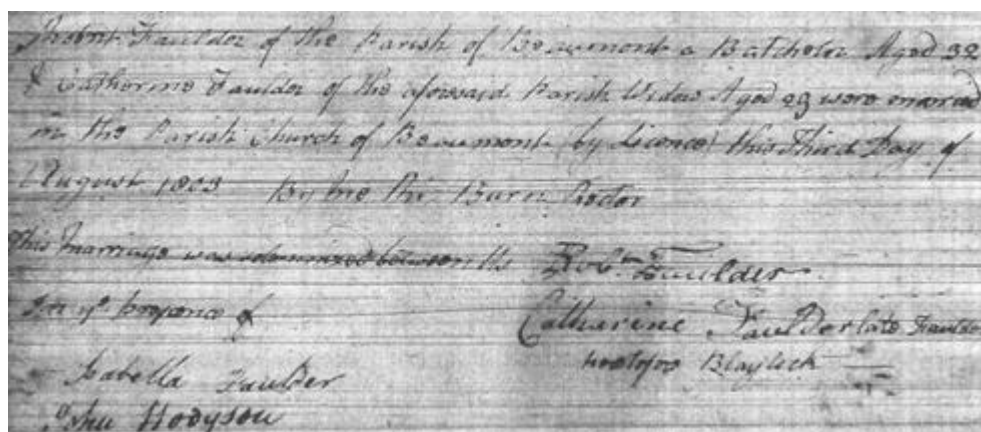 Robert Faulder of the Parish of Beaumont a Batchelor Aged 32
& Catharine Faulder of the aforesaid Parish Widow Aged 29 were married
in the Parish Church of Beaumont (by Licence) this Third Day of
August 1803 By me Burn Rector
This Marriage was solemnized between Us Robt. Faulder
In ye. presence of Catharine Faulder late Faulder
Blaylock
Isabella Faulder
John Hodgson